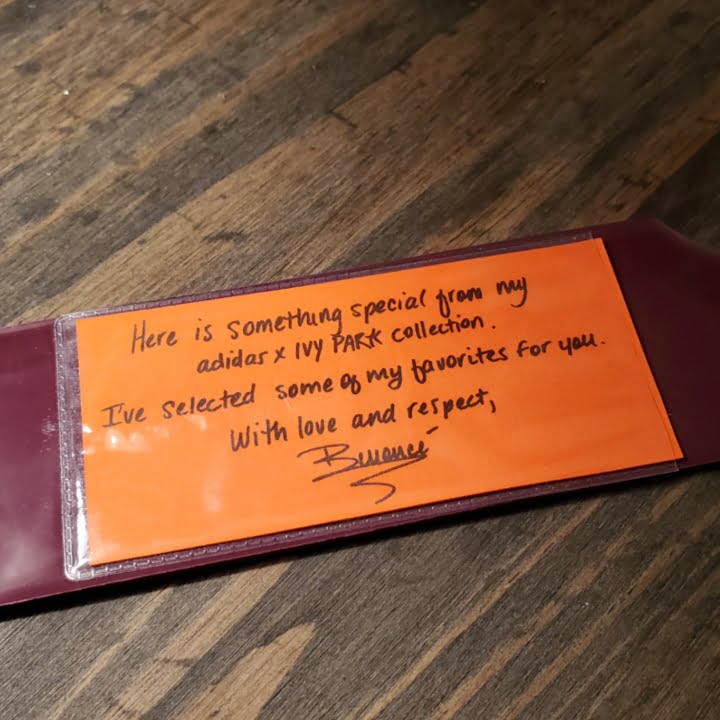 Here is something special from my
adidas x IVY PARK collection.
I've selected some of my favorites for you.
With love and respect,
Beyoncé